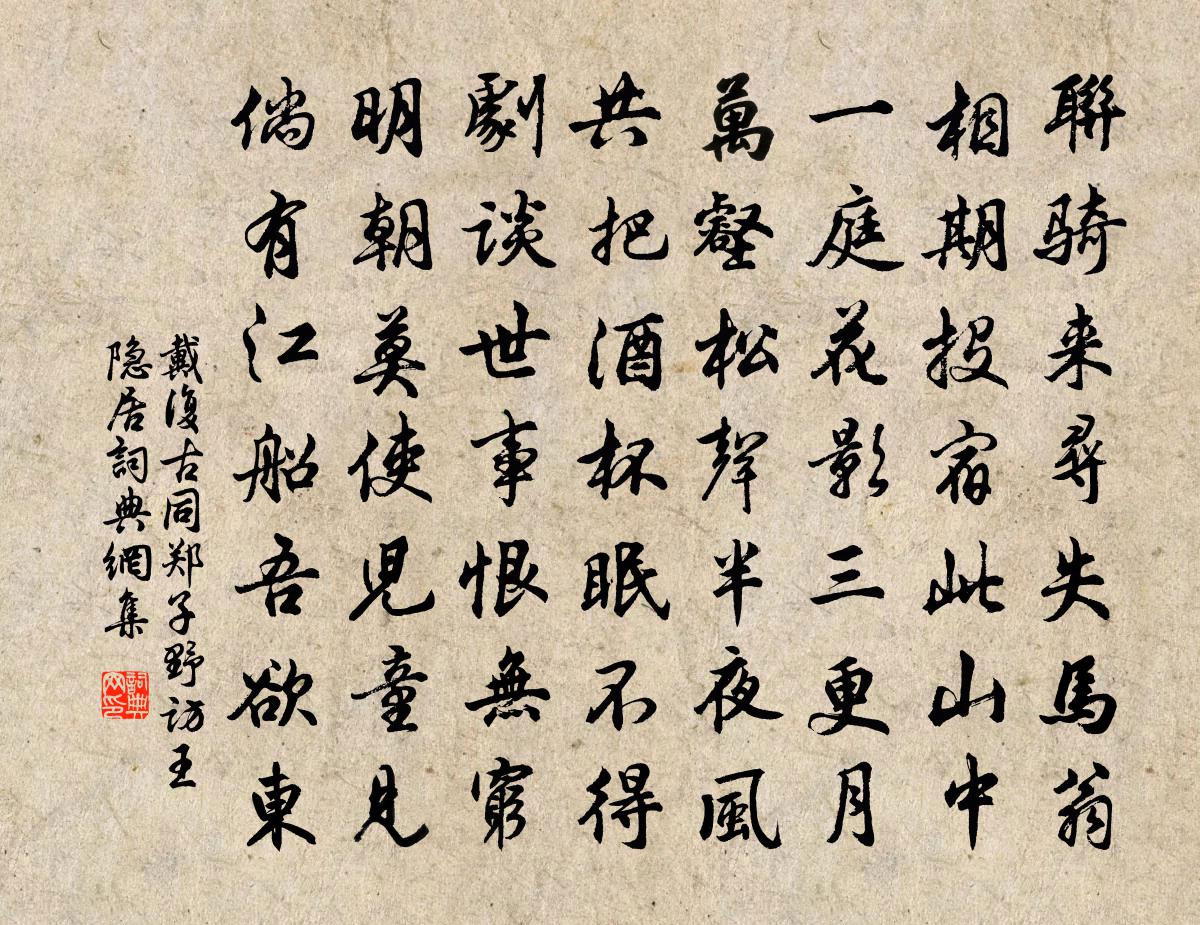 聯骑来尋失馬翁
相期投宿此山中
一庭花影三更月
萬壑松聲半夜風
共把酒杯眠不得
劇談世事恨無窮
明朝莫使兒童見
倘有江船吾欲東
戴復古同郑子野访王
隐居詞典網集
詞典网印